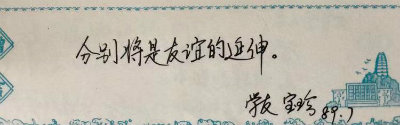 分别将是友谊的延伸。
学友 宝玲 89.7